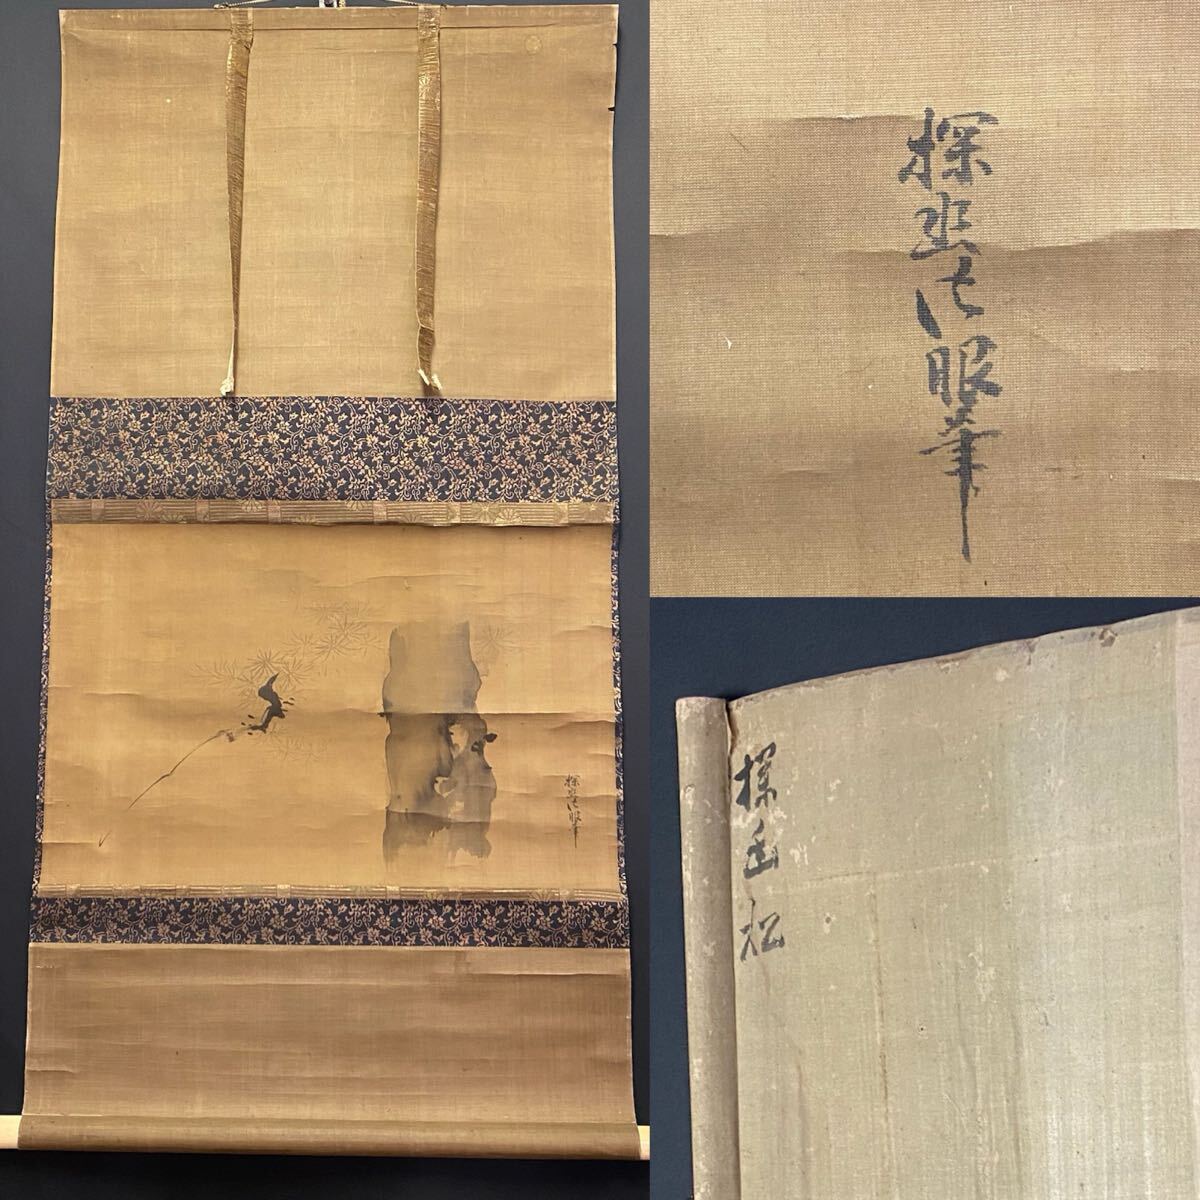 探幽法眼筆
探幽法眼筆
探幽 松